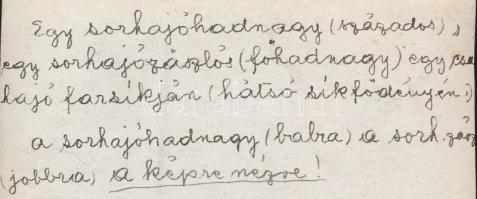 Egy sorhajóhadnagy (százados),
egy sorhajózászlós (főhadnagy) egy csa
hajó farsíkján (hátsó síkfödényen:)
a sorhajóhadnagy (balra) a sorh. zász
(jobbra) a képre nézve!